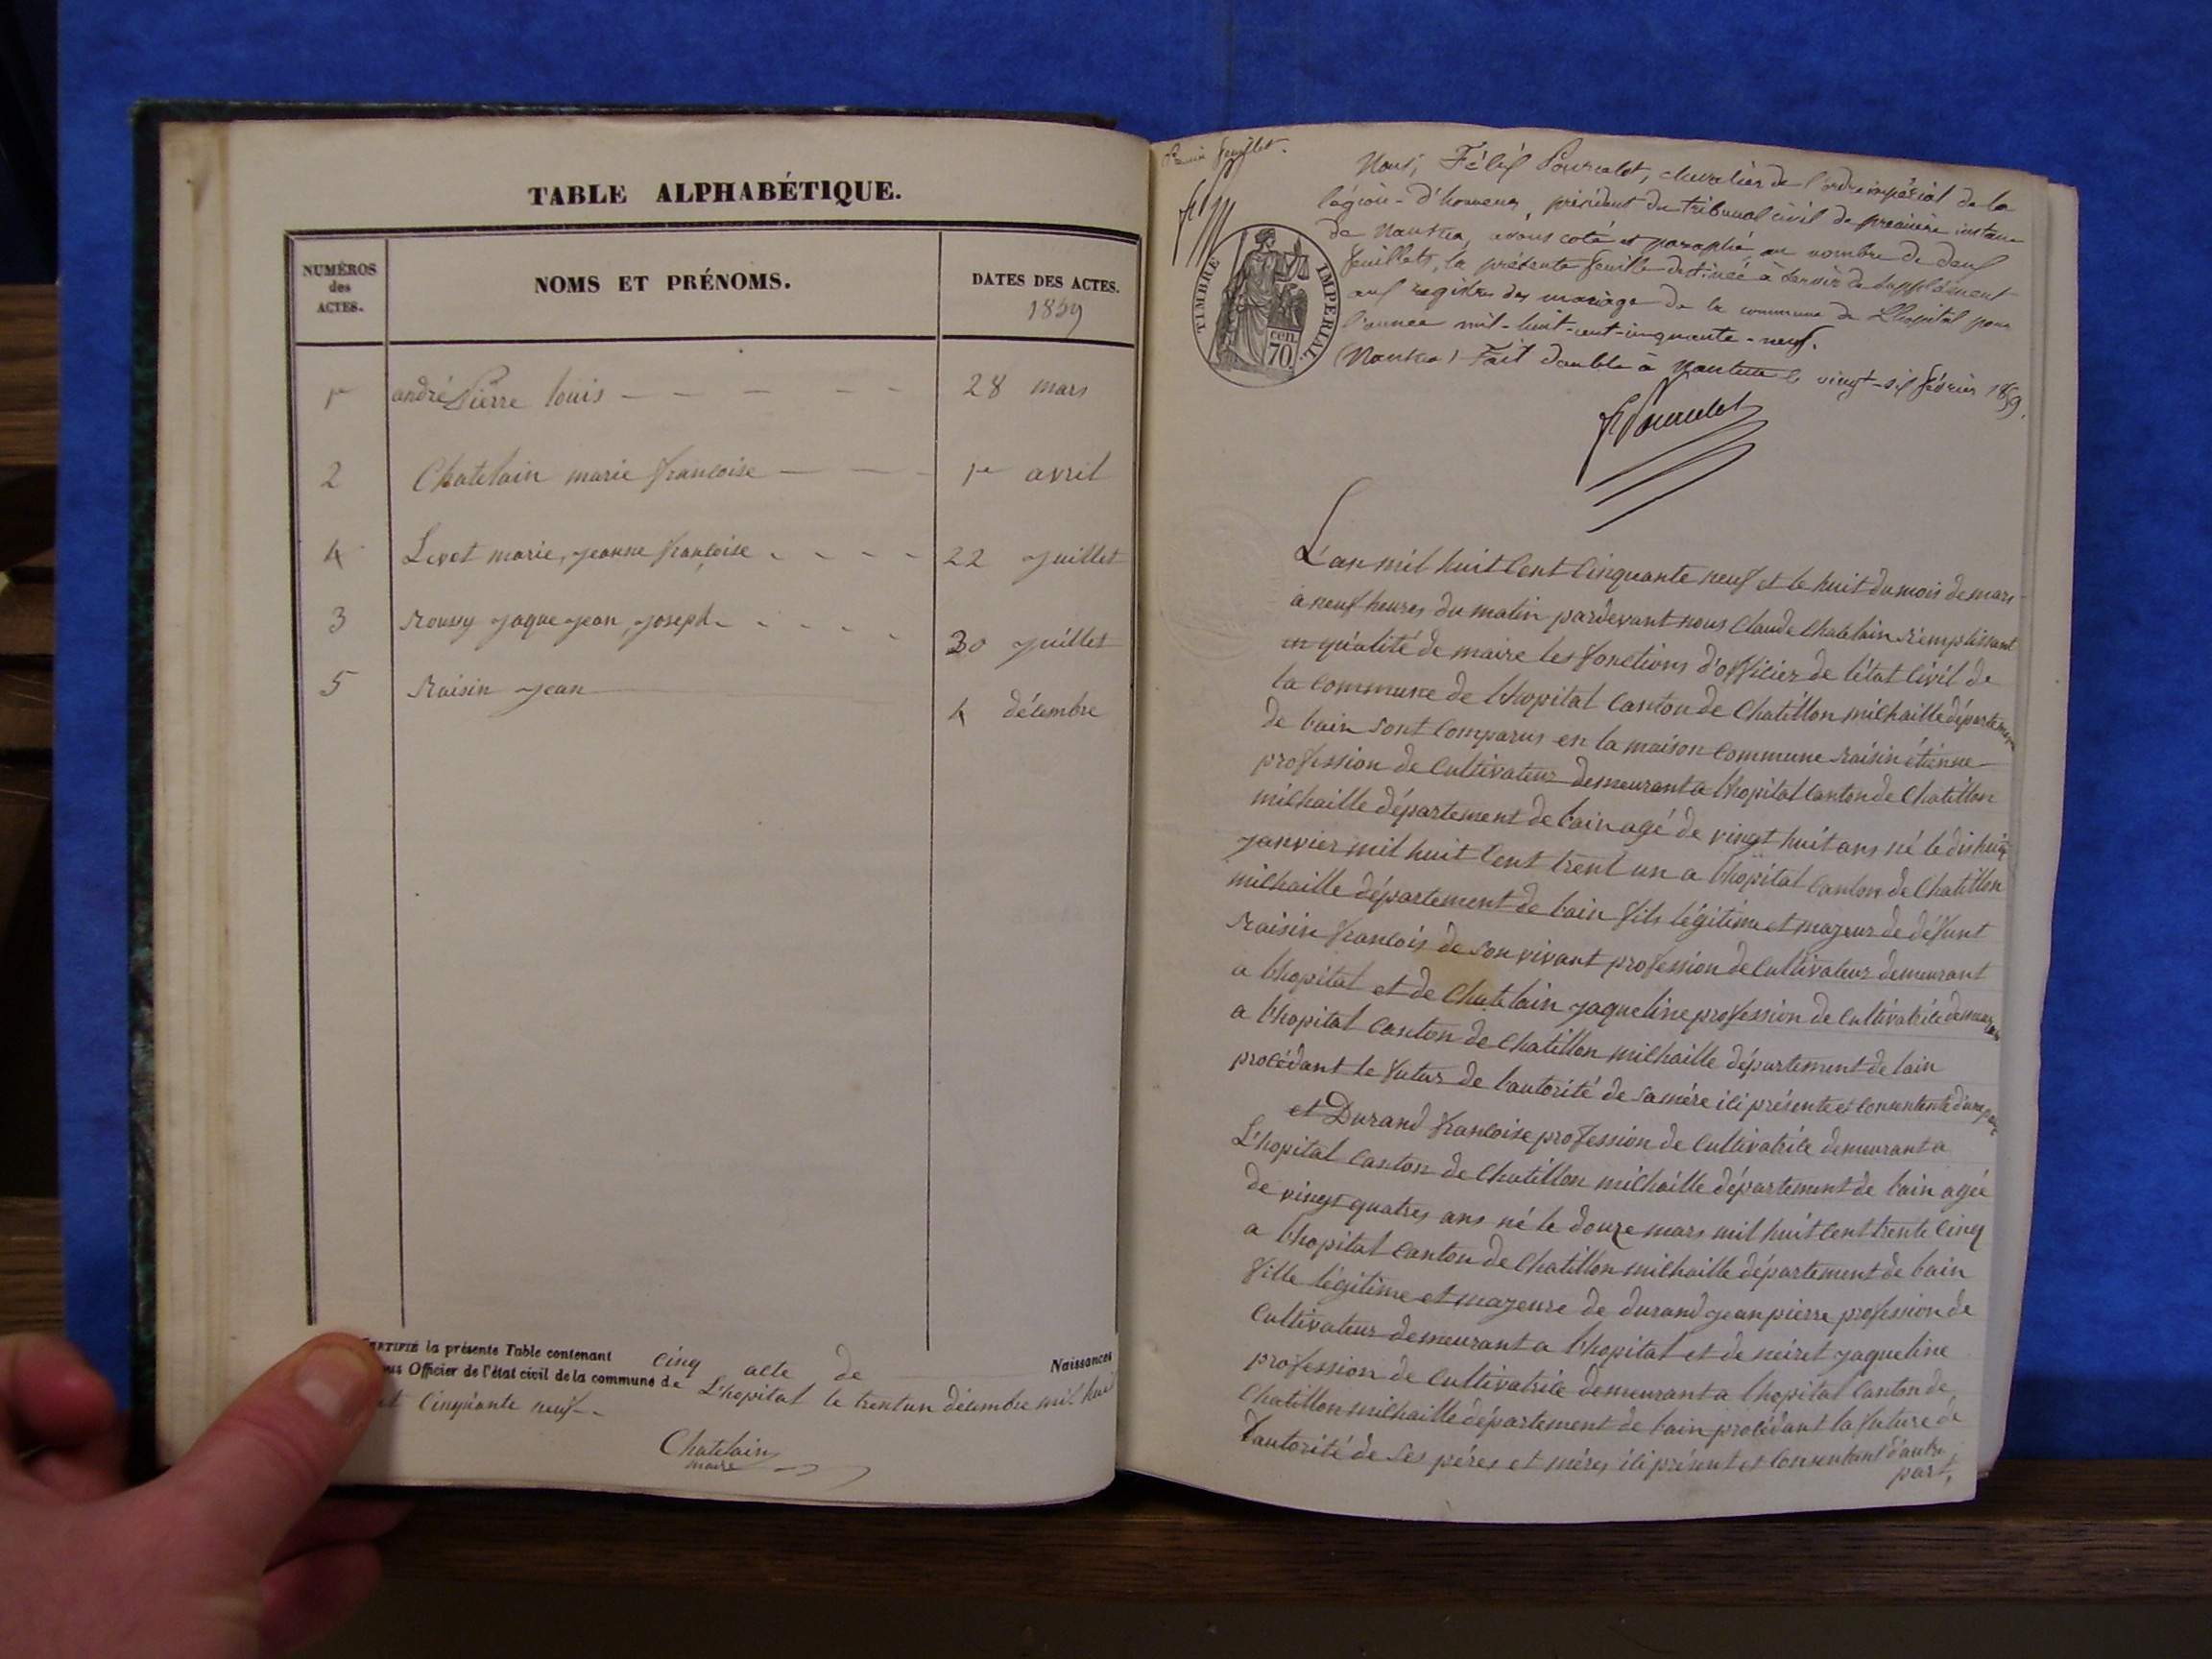 TABLE ALPHABÉTIQUE.
NUMÉROS
des
ACTES.
NOMS ET PRÉNOMS.
DATES DES ACTES.
1859
1er andré Pierre louis 28 mars
2 Chatelain marie francoise 1er avril
4 Levet marie, jeanne francoise 22 juillet
3 Roussy jaque jean, joseph 30 juillet
5 Raisin jean 4 décembre
CERTIFIÉ la présente Table contenant cinq acte de Naissances
Officier de l'état civil de la commune de L'hopital le trentun décembre mil huit
cinquante neuf
Chatelain
maire
feuillet.
TIMBRE IMPÉRIAL.
70 cen
Nous, Félix , chevalier de l'ordre impérial de la
légion-d'honneur, président du tribunal civil de première instance
de Nantua, avons coté et paraphé, au nombre de deux
feuillets, la présente feuille destinée à servir de supplément
aux registres des mariage de la commune de Lhopital pour
l'année mil-huit-cent-cinquante-neuf.
(Nantua) Fait double à Nantua le vingt-six février 1859.
L'an mil huit cent cinquante neuf et le huit du mois de mars
a neuf heures du matin pardevant nous Claude Chatelain remplissant
en qualité de maire les fonctions d'officier de l'état civil de
la commune de lhopital canton de Chatillon michaille département
de lain sont comparus en la maison commune raisin étienne
profession de cultivateur demeurant a lhopital canton de Chatillon
michaille département de lain agé de vingt huit ans né le dishuit
janvier mil huit cent trent un a lhopital canton de Chatillon
michaille département de lain fils légitime et majeur de défunt
raisin francois de son vivant profession de cultivateur demeurant
a lhopital et de Chatelain jaqueline profession de cultivatrice demeurant
a lhopital canton de Chatillon michaille département de lain
procédant le futur de lautorité de sa mére ici présente et consentente d'une part
et Durand francoise profession de cultivatrice demeurant a
L'hopital canton de Chatillon michaille département de lain agée
de vingt quatres ans né le douze mars mil huit cent trente cinq
a lhopital canton de Chatillon michaille département de lain
fille légitime et majeure de durand jean pierre profession de
cultivateur demeurant a lhopital et de neiret jaqueline
profession de cultivatrice demeurant a lhopital canton de
Chatillon michaille département de lain procédant la future de
l'autorité de ses péres et méres ici présent et consentant d'autre
part,